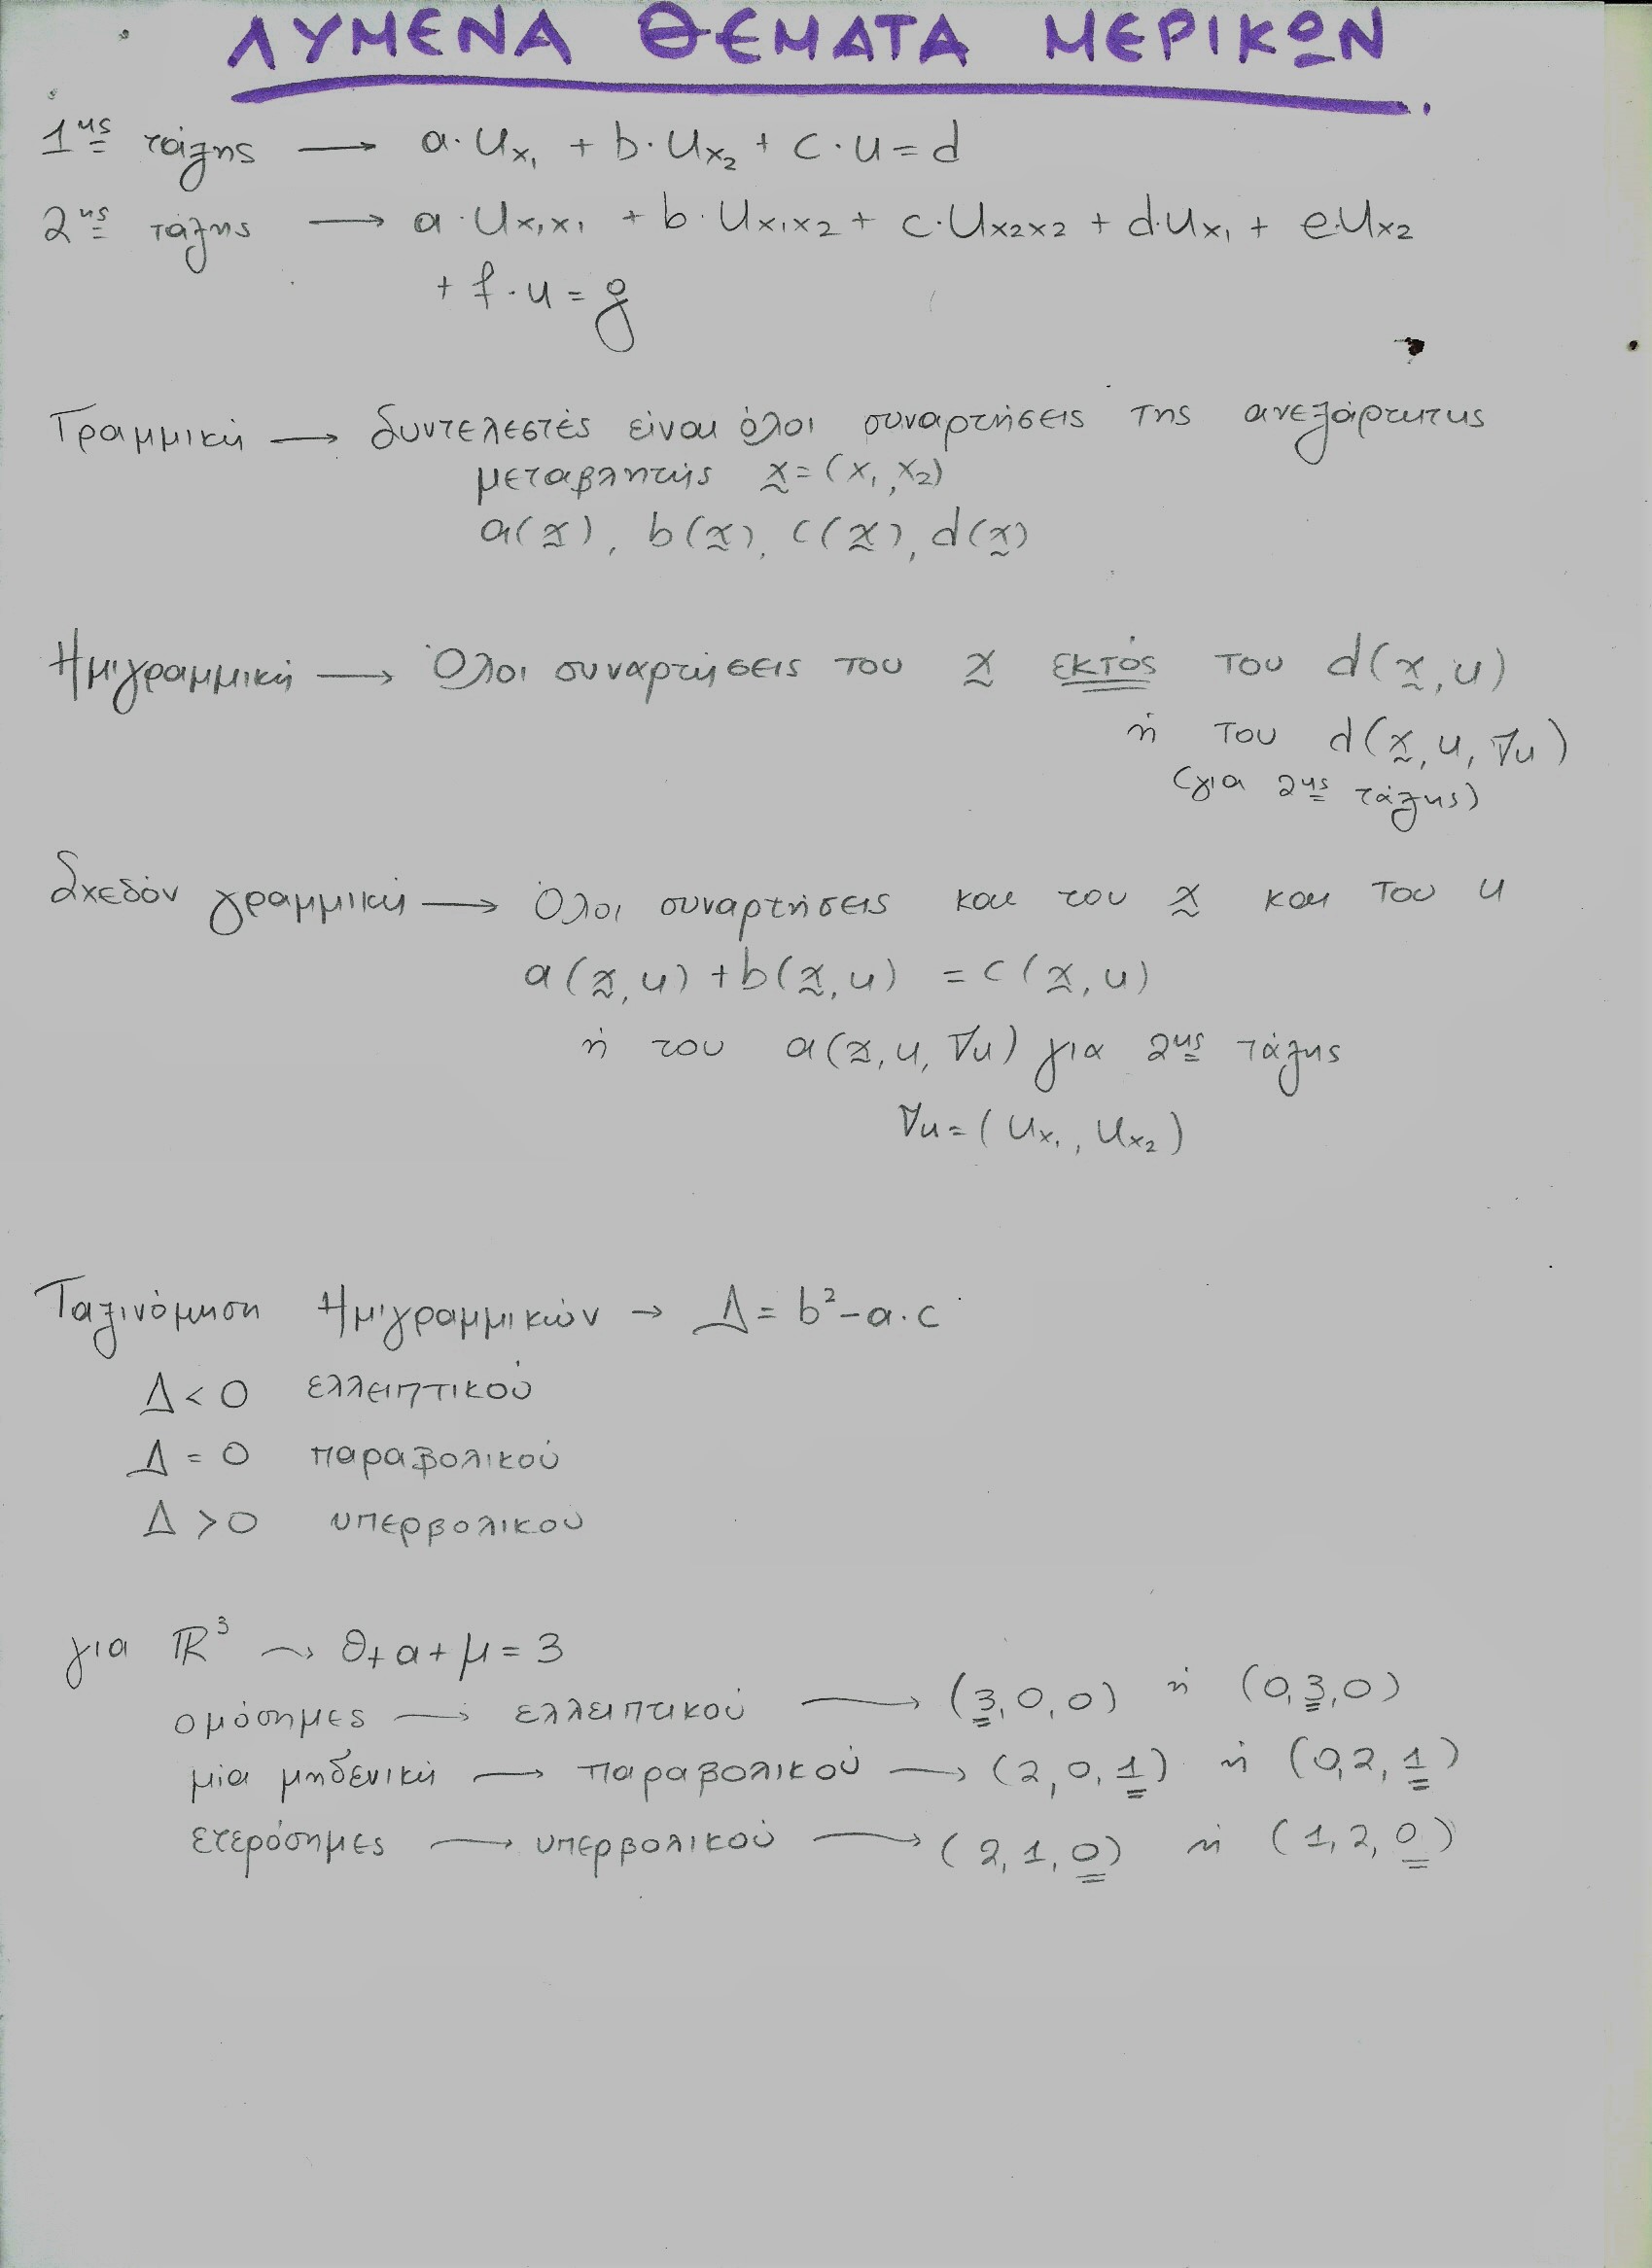 ΛΥΜΕΝΑ ΘΕΜΑΤΑ ΜΕΡΙΚΩΝ
1ης τάξης → a·u_x₁ + b·u_x₂ + c·u = d
2ης τάξης → a·u_x₁x₁ + b·u_x₁x₂ + c·u_x₂x₂ + d·u_x₁ + e·u_x₂
+ f·u = g
Γραμμική → Συντελεστές είναι όλοι συναρτήσεις της ανεξάρτητης
μεταβλητής x̰ = (x₁, x₂)
a(x̰), b(x̰), c(x̰), d(x̰)
Ημιγραμμική → Όλοι συναρτήσεις του x̰ εκτός του d(x̰, u)
ή του d(x̰, u, ∇u)
(για 2ης τάξης)
Σχεδόν γραμμική → Όλοι συναρτήσεις και του x̰ και του u
a(x̰, u) + b(x̰, u) = c(x̰, u)
ή του a(x̰, u, ∇u) για 2ης τάξης
∇u = (u_x₁, u_x₂)
Ταξινόμηση Ημιγραμμικών → Δ = b² - a·c
Δ < 0 ελλειπτικού
Δ = 0 παραβολικού
Δ > 0 υπερβολικού
για ℝ³ → θ + α + μ = 3
ομόσημες → ελλειπτικού → (3, 0, 0) ή (0, 3, 0)
μία μηδενική → παραβολικού → (2, 0, 1) ή (0, 2, 1)
ετερόσημες → υπερβολικού → (2, 1, 0) ή (1, 2, 0)